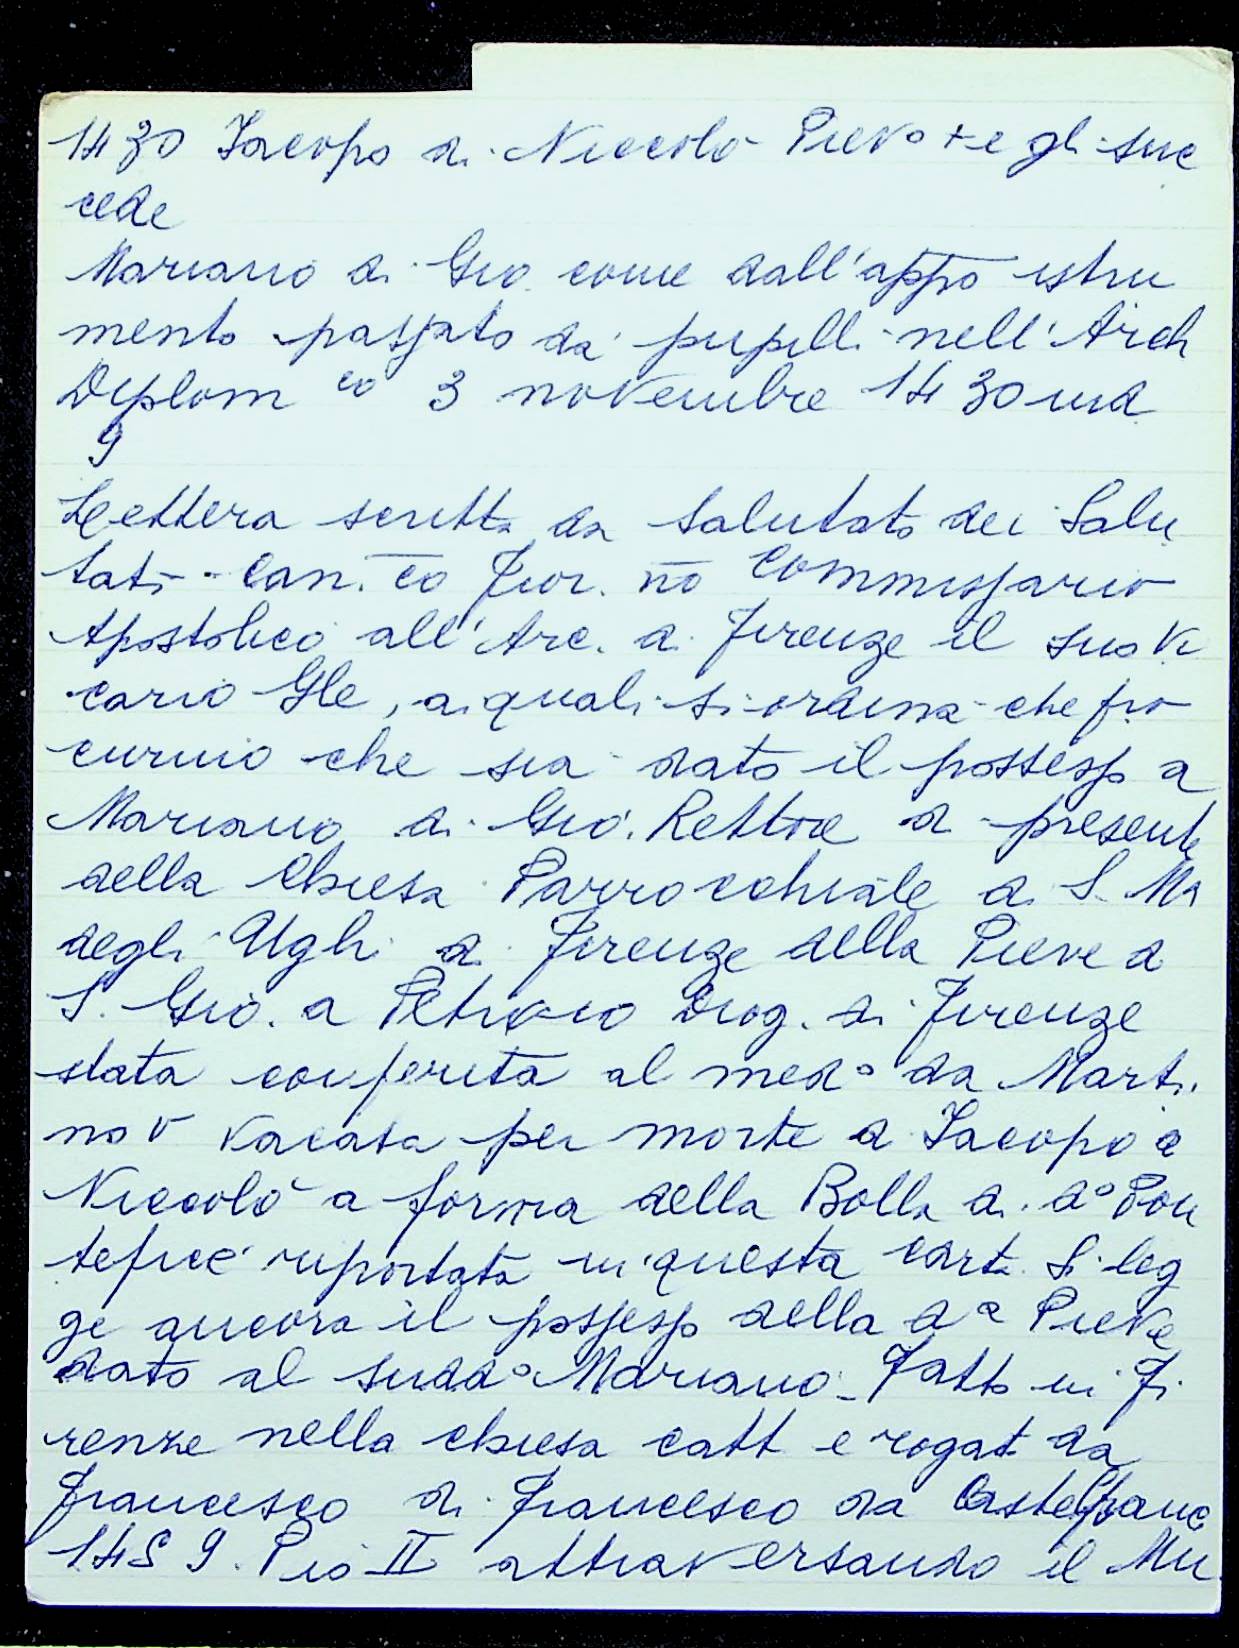 1430 Iacopo di Niccolò Pievo + e gli suc
cede
Mariano di Gio. come dall'appo istru
mento passato da' pupilli nell'Arch
Diplom co 3 novembre 1430 ind
9
Lettera scritta da Salutato dei Salu
tati Can. co Fior. no Commissario
Apostolico all'Arc. di Firenze il suo Vi
cario Gle, ai quali si ordina che pro
curino che sia dato il possesso a
Mariano di Gio. Rettore di presente
della Chiesa Parrocchiale di S. Ma
degli Ughi di Firenze della Pieve di
S. Gio. a Petroio Diog. di Firenze
stata conferita al medo da Marti
no V vacata per morte di Iacopo e
Niccolò a forma della Bolla di do Pon
tefice riportata in questa carta. Si leg
ge ancora il possesso della da Pieve
dato al suddo Mariano - Fatto in Fi
renze nella chiesa catt e rogat da
Francesco di Francesco da Castelfranc
1459. Pio II attraversando il Mu